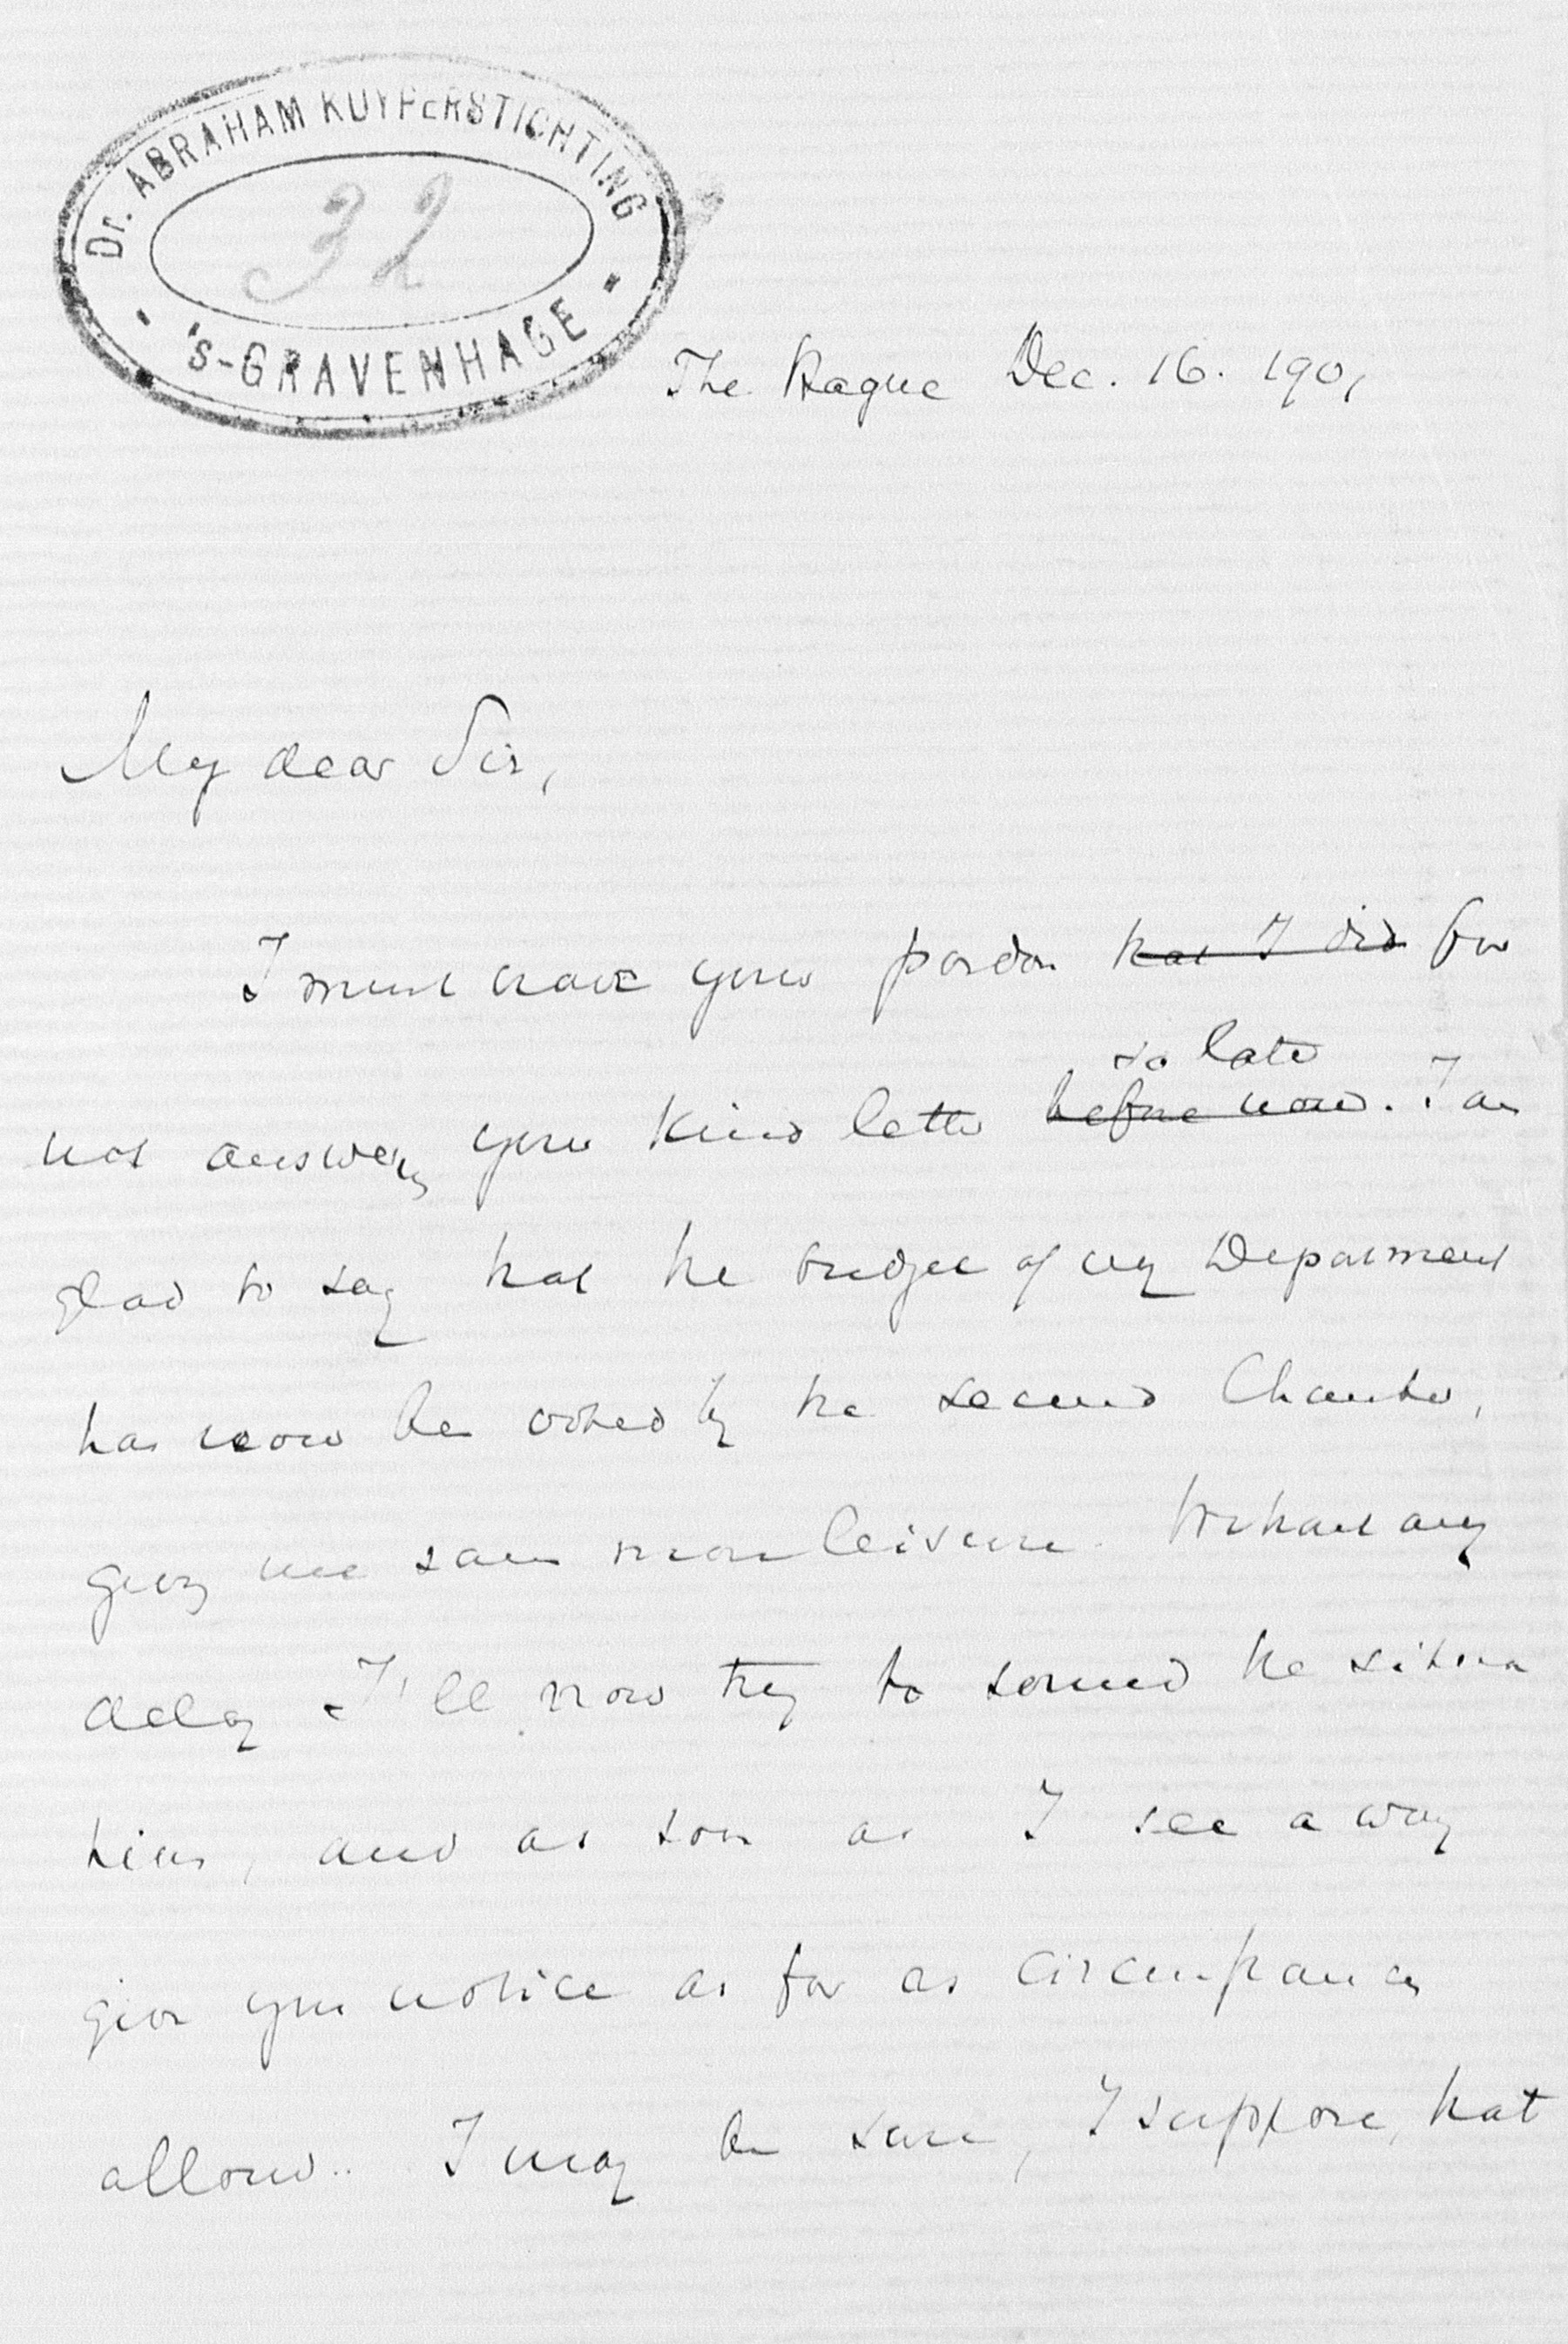 Dr. ABRAHAM KUYPERSTICHTING
32
'S-GRAVENHAGE
The Hague Dec. 16. 1901
My dear Sir,
I must crave your pardon that I did for
so late
not answering your kind letter before now. I am
glad to say that the budget of my Department
has now been voted by the second Chamber,
giving me some more leisure. Without any
delay I'll now try to sound the situa
tions, and as soon as I see a way
give you notice as far as circumstances
allow.. I may be sure, I suppose, that